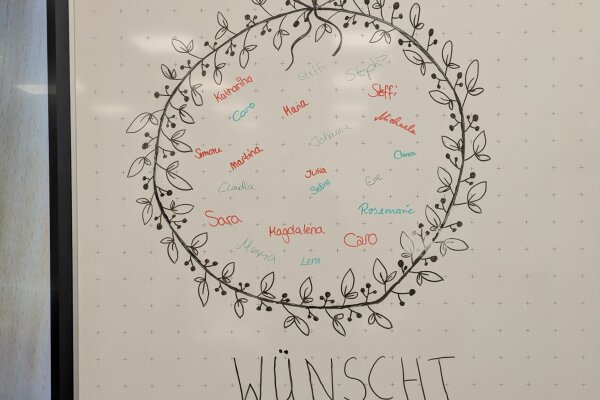 Steffi
Stephi
Katharina
Steffi
Caro
Maria
Michaela
Johanna
Simone
Martina
Chiara
Julia
Claudia
Eve
Sara
Rosemarie
Magdalena
Caro
Lena
WÜNSCHT